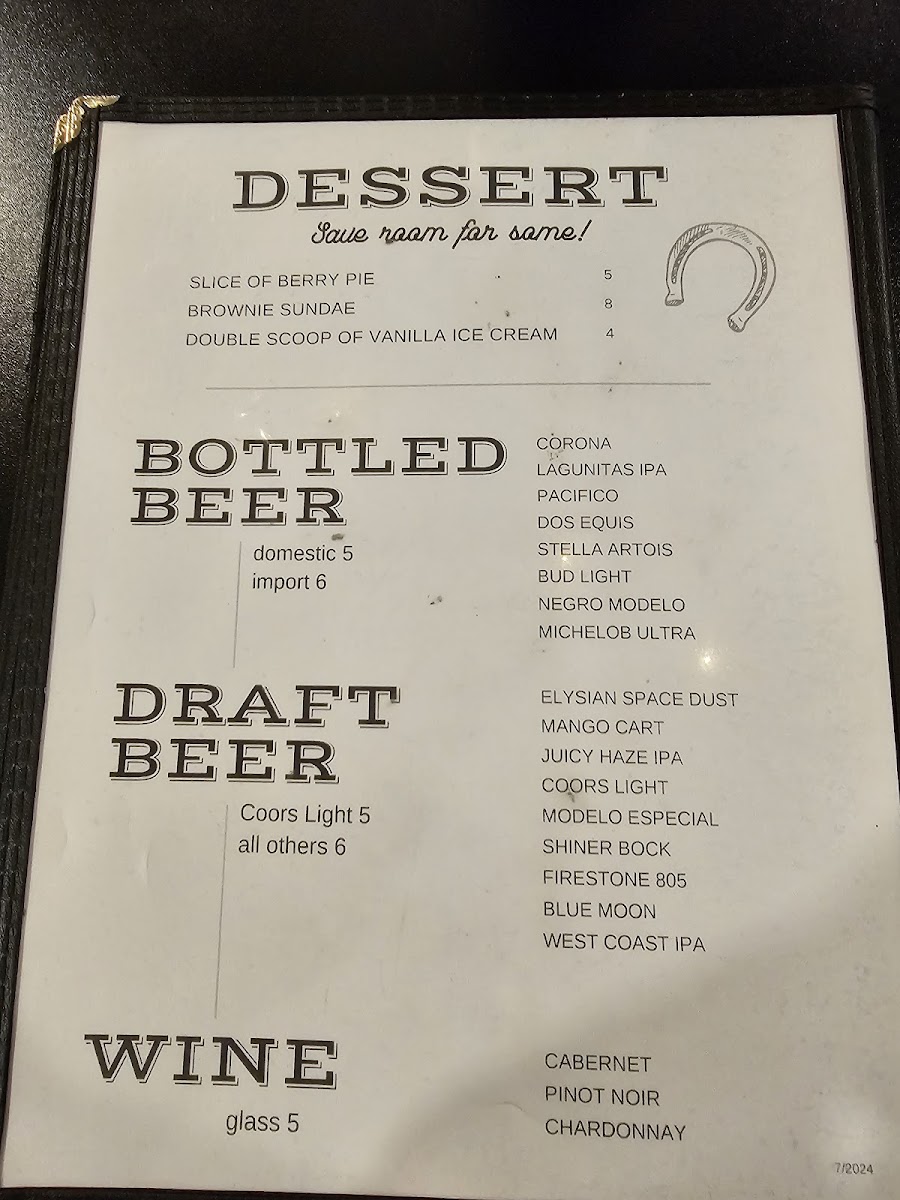 DESSERT
Save room for some!
SLICE OF BERRY PIE 5
BROWNIE SUNDAE 8
DOUBLE SCOOP OF VANILLA ICE CREAM 4
BOTTLED
BEER
domestic 5
import 6
CORONA
LAGUNITAS IPA
PACIFICO
DOS EQUIS
STELLA ARTOIS
BUD LIGHT
NEGRO MODELO
MICHELOB ULTRA
DRAFT
BEER
Coors Light 5
all others 6
ELYSIAN SPACE DUST
MANGO CART
JUICY HAZE IPA
COORS LIGHT
MODELO ESPECIAL
SHINER BOCK
FIRESTONE 805
BLUE MOON
WEST COAST IPA
WINE
glass 5
CABERNET
PINOT NOIR
CHARDONNAY
7/2024